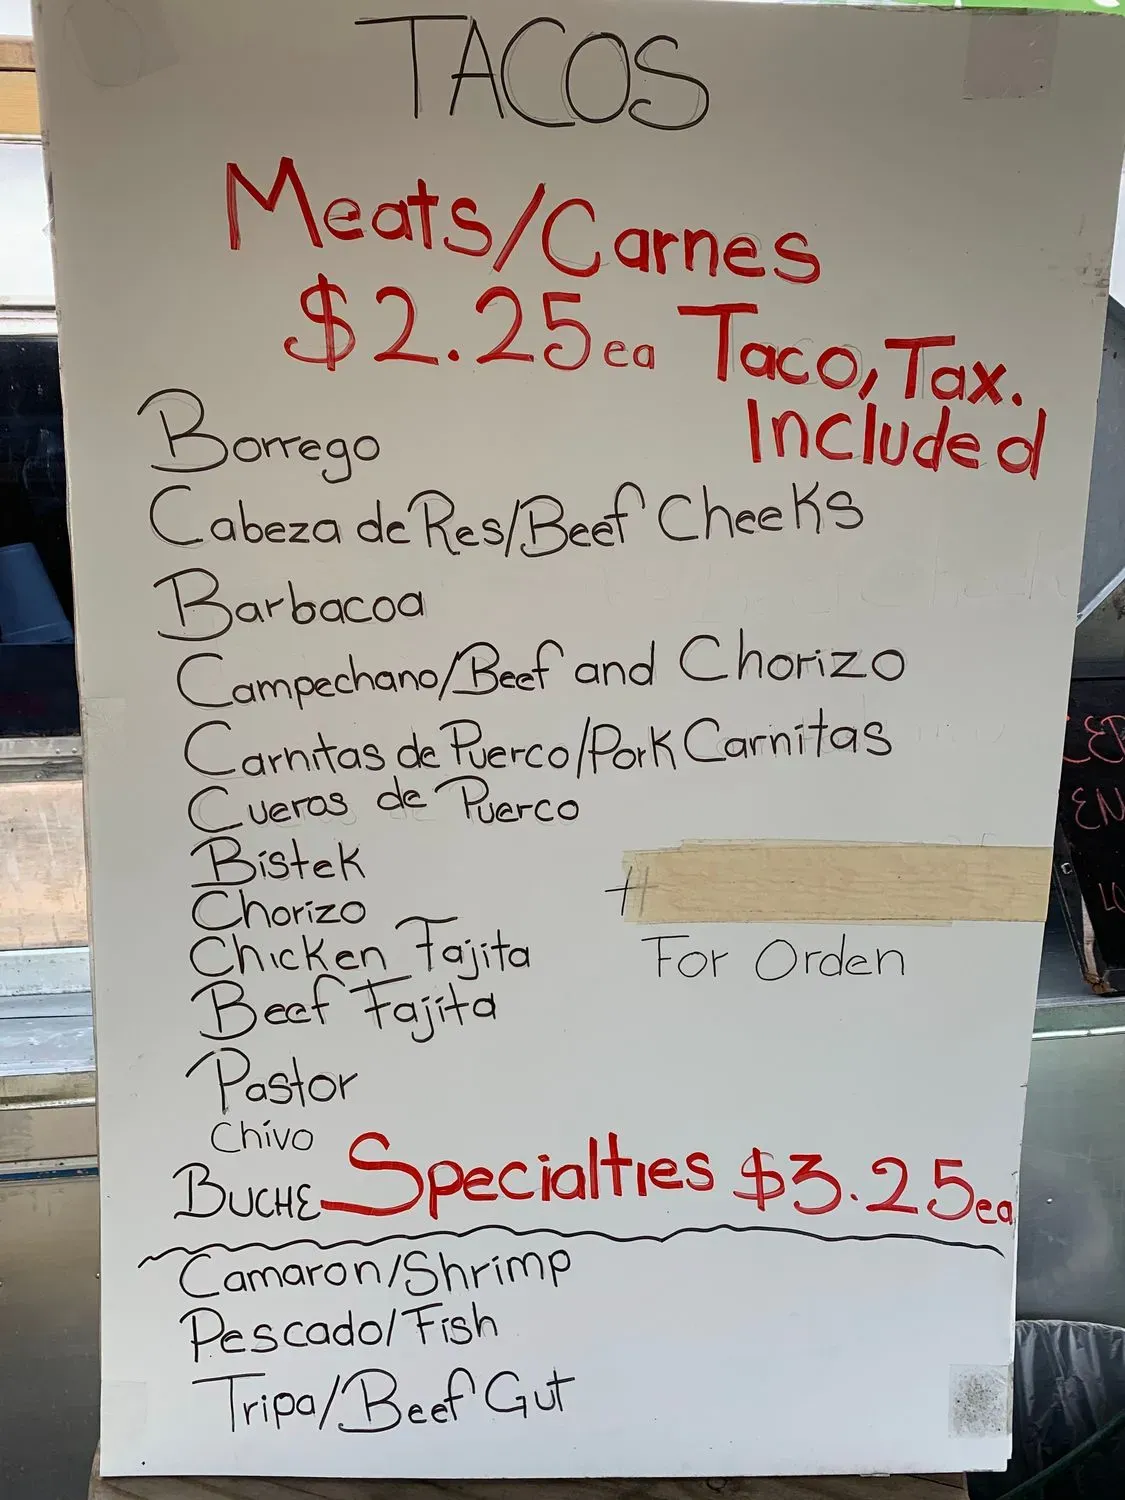 TACOS
Meats/Carnes
$2.25ea Taco, Tax.
Included
Borrego
Cabeza de Res/Beef Cheeks
Barbacoa
Campechano/Beef and Chorizo
Carnitas de Puerco/Pork Carnitas
Cueros de Puerco
Bistek
Chorizo
Chicken Fajita
Beef Fajita
For Orden
Pastor
Chivo
BUCHE
Specialties $3.25ea
Camaron/Shrimp
Pescado/Fish
Tripa/Beef Gut